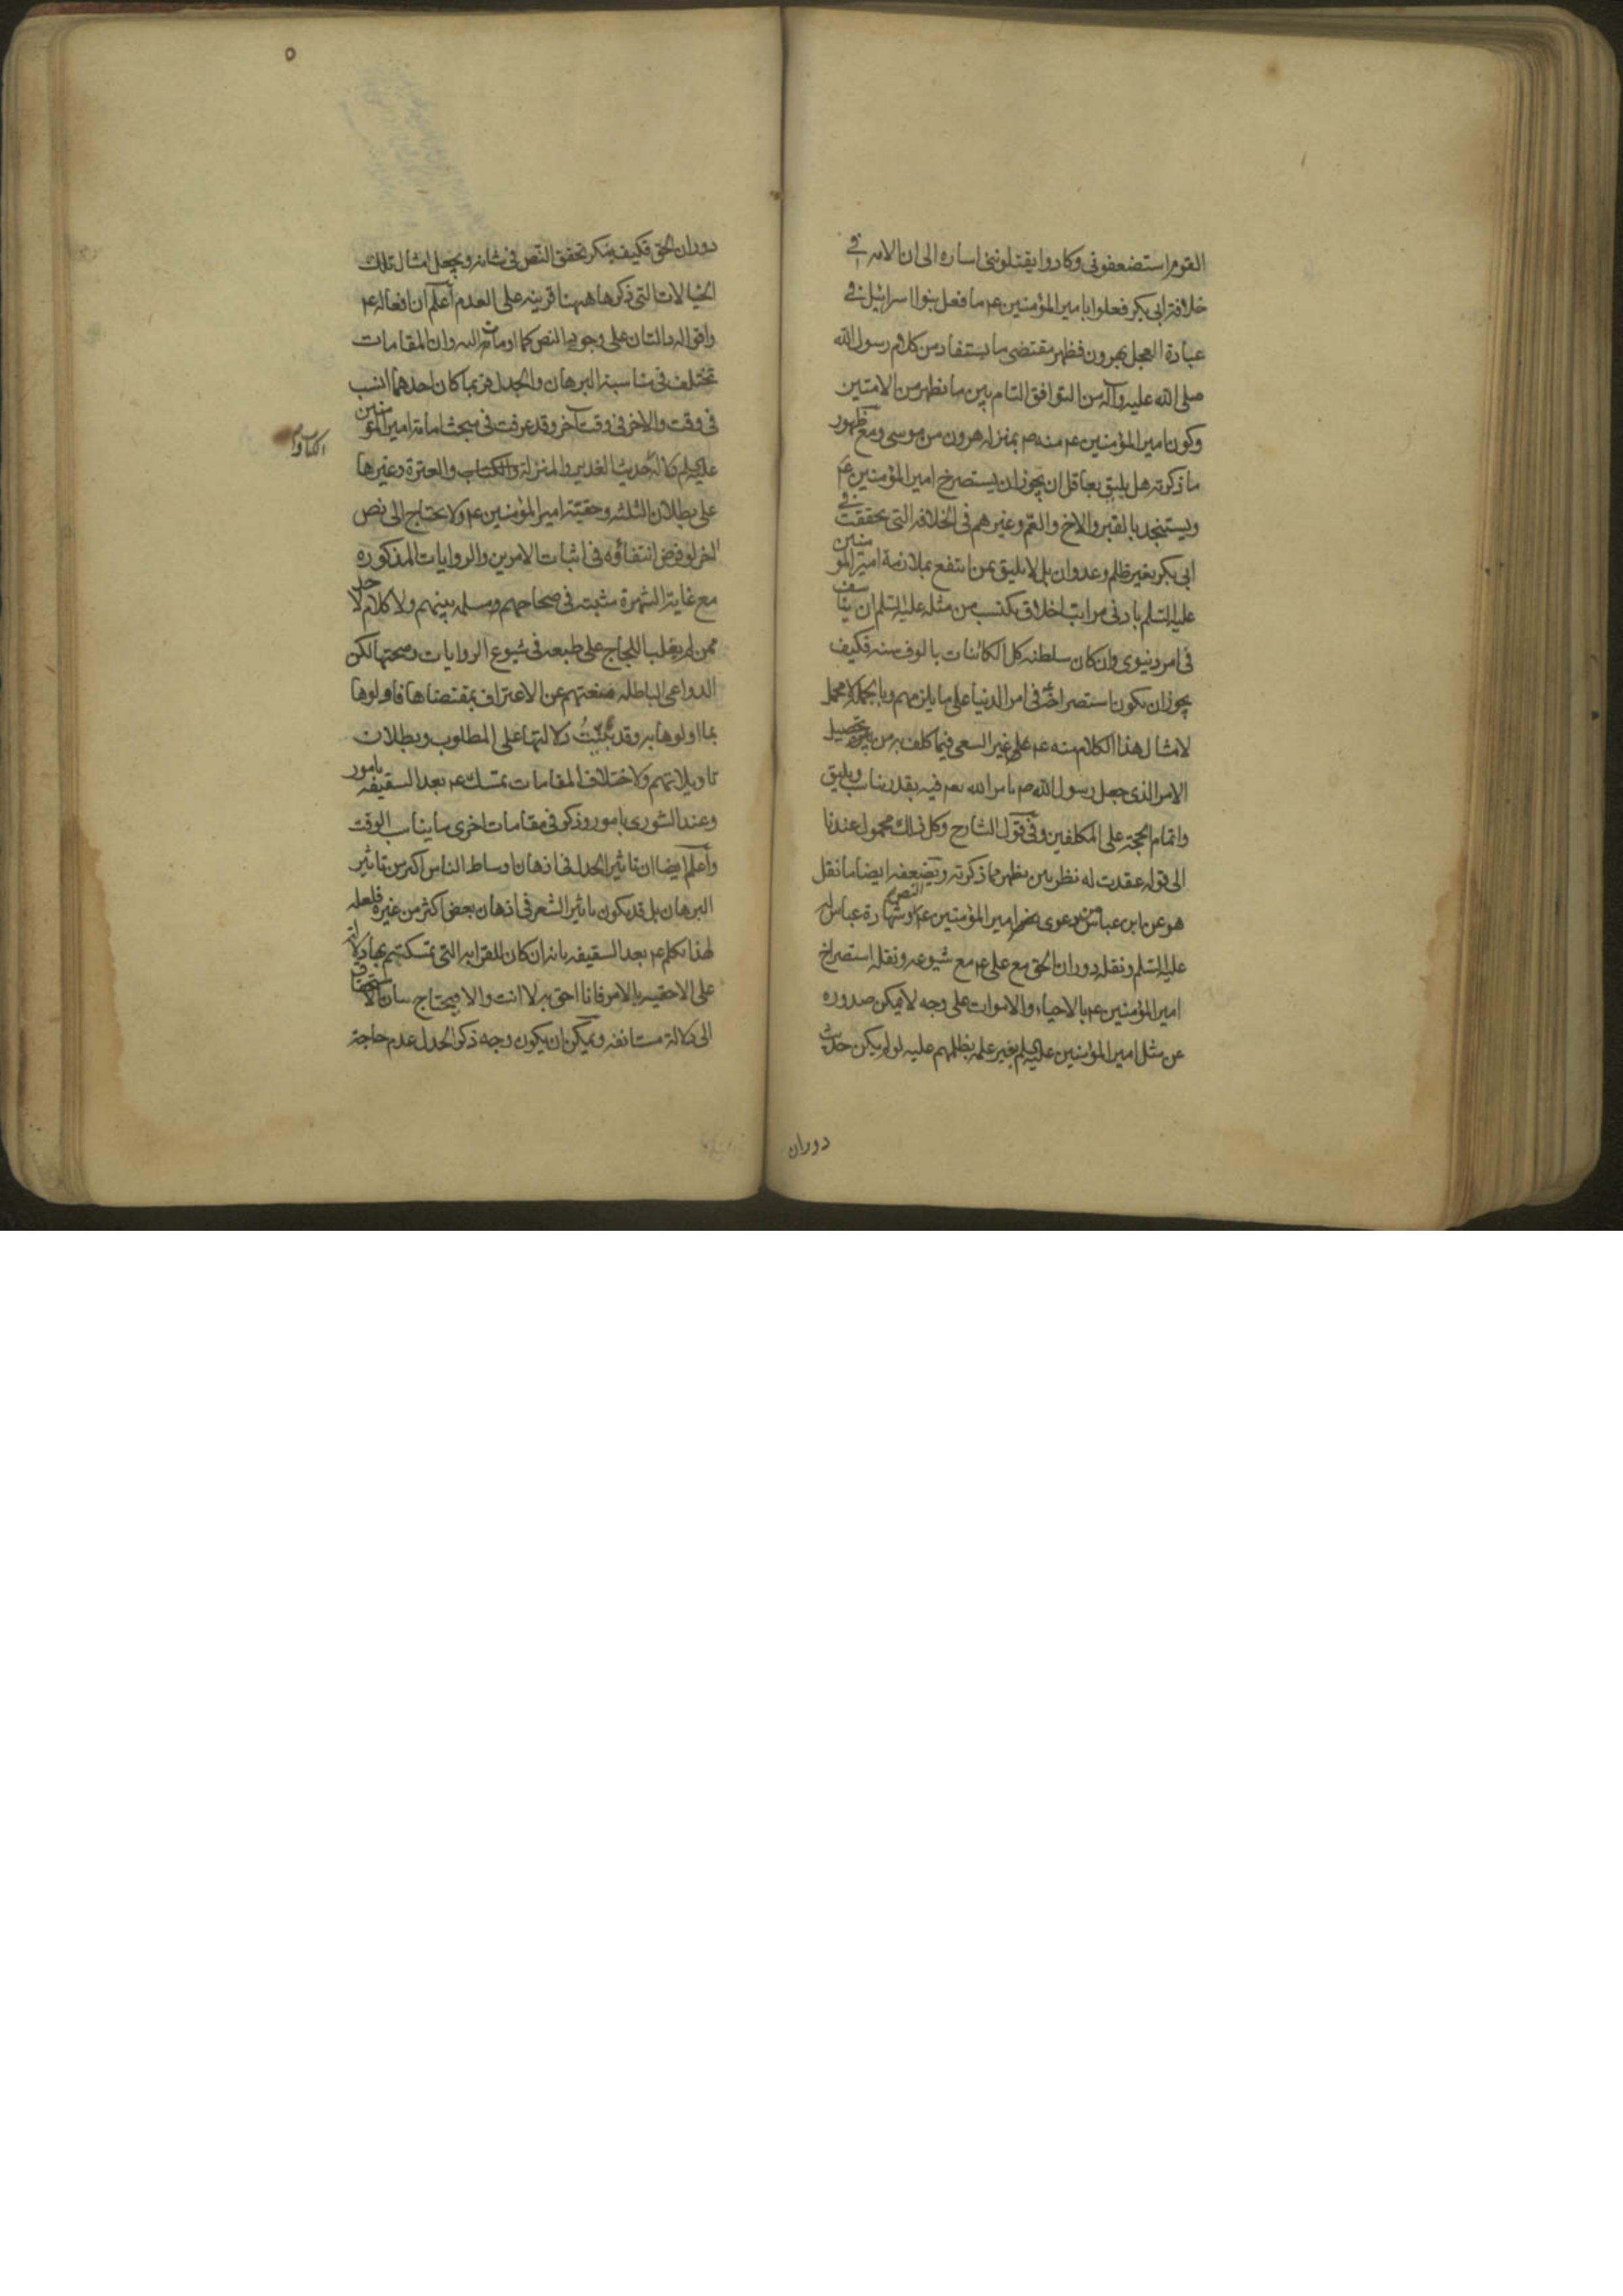 القوم استضعفوني وكادوا يقتلونني اشاره الى ان الامة في
خلافة ابي بكر فعلوا بامير المؤمنين عم ما فعل بنوا اسرائيل في
عبادة العجل بهرون فظهر مقتضى ما يستفاد من كلام رسول الله
صلى الله عليه وآله من التوافق التام بين ما نظهر من الامتين
وكون امير المؤمنين عم منه صم بمنزله هرون من موسى ومع ظهور
ما ذكرته هل يليق بعاقل ان يجوز ان يستصرخ امير المؤمنين عم
ويستنجد بالقبر والاخ والعم وغيرهم في الخلافه التي تحققت في
ابي بكر بغير ظلم وعدوان بل لا يليق بمن انتفع بملازمة امير المؤمنين
عليه السلم بادنى مراتب اخلاق يكتسب من مثله عليه السلم ان يتأسف
في امر دنيوي وان كان سلطنه كل الكائنات بالوف سنه فكيف
يجوز ان يكون استصراخه في امر الدنيا على ما يلزمهم وبالجمله لا محمل
لامثال هذا الكلام منه عم على غير السعي فيما كلف به من تحصيل
الامر الذي جعل رسول الله صم بامر الله تعم فيه بقدر يناسب ويليق
واتمام الحجة على المكلفين وفي قول الشارح وكل ذلك محمول عندنا
الى قوله عقدت له نظر بين يظهر مما ذكرته ويضعفه ايضا ما نقل
هو عن ابن عباس من دعوى امير المؤمنين عم النص وشهادة عباس له
عليه السلم ونقله دوران الحق مع علي عم مع شيوعه ونقله استصراخ
امير المؤمنين عم بالاحياء والاموات على وجه لا يمكن صدوره
عن مثل امير المؤمنين عليه السلم بغير علمه بظلمهم عليه لو لم يكن حديث
دوران
٥
دوران الحق فكيف ينكر تحقق النص في شانه ويجعل امثال تلك
الخيالات التي ذكرها ههنا قرينه على العدم اعلم ان افعاله عم
واقواله دالتان على وجود النص كما اومأت اليه وان المقامات
تختلف في مناسبة البرهان والجدل فربما كان احدهما انسب
في وقت والاخر في وقت آخر وقد عرفت في مبحث امامة امير المؤمنين
عليه السلم دلالة حديث الغدير والمنزلة والكتاب والعترة وغيرها
على بطلان الثلثه وحقية امير المؤمنين عم ولا يحتاج الى نص
اخر لو فرض انتفاؤه في اثبات الامرين والروايات المذكوره
مع غاية الشهرة مثبته في صحاحهم ومسلمه بينهم ولا كلام لاحد
ممن لم يغلب اللجاج على طبعه في شيوع الروايات وصحتها لكن
الدواعي الباطله منعتهم عن الاعتراف بمقتضاها فاولوها
بما اولوها به وقد بينت دلالتها على المطلوب وبطلان
تاويلاتهم ولاختلاف المقامات تمسك عم بعد السقيفه بامور
وعند الشورى بامور وذكر في مقامات اخرى ما يناسب الوقت
واعلم ايضا ان تاثير الجدل في اذهان اوساط الناس اكثر من تاثير
البرهان بل قد يكون تاثير الشعر في اذهان بعض اكثر من غيره فلعله
لهذا تكلم عم بعد السقيفه بانه ان كان للقرابه التي تمسكتم بها دلالة
على الاحقيه بالامر فانا احق به لا انت والا فيحتاج بيان الاستحقاق
الى دلالة مستانفه ويمكن ان يكون وجه ذكر الجدل عدم حاجة